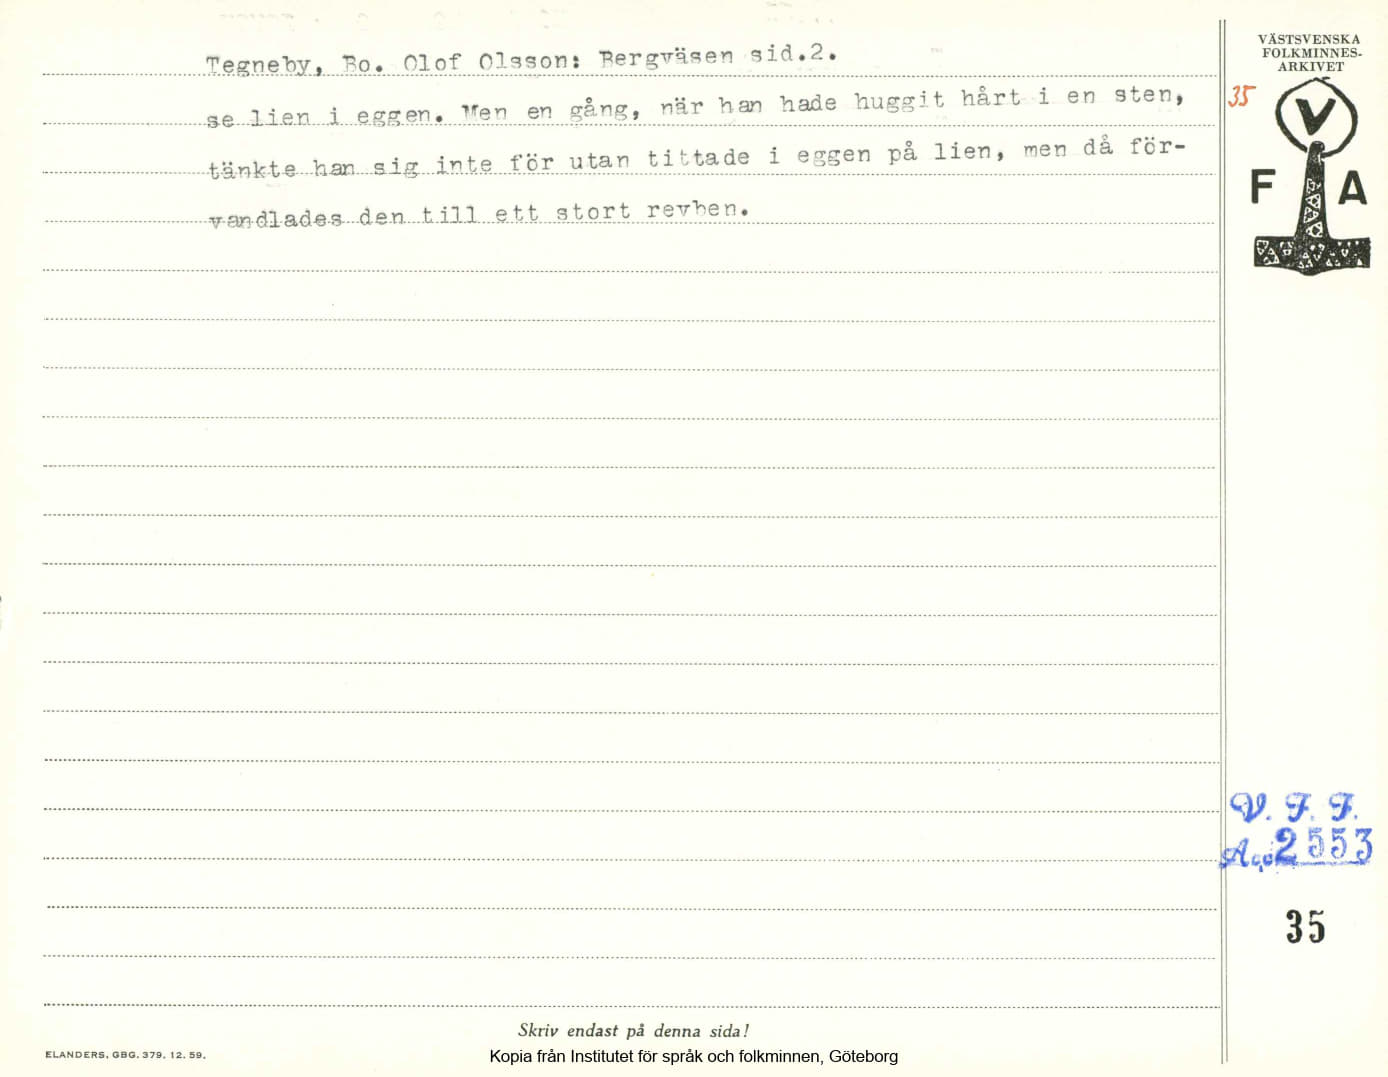 Tegneby, Bo. Olof Olsson: Bergväsen sid.2.
se lien i eggen. Men en gång, när han hade huggit hårt i en sten,
tänkte han sig inte för utan tittade i eggen på lien, men då för-
vandlades den till ett stort revben.
VÄSTSVENSKA
FOLKMINNES-
ARKIVET
35
V
F A
V. F. F.
Acc 2553
35
Skriv endast på denna sida!
ELANDERS, GBG. 379. 12. 59.
Kopia från Institutet för språk och folkminnen, Göteborg